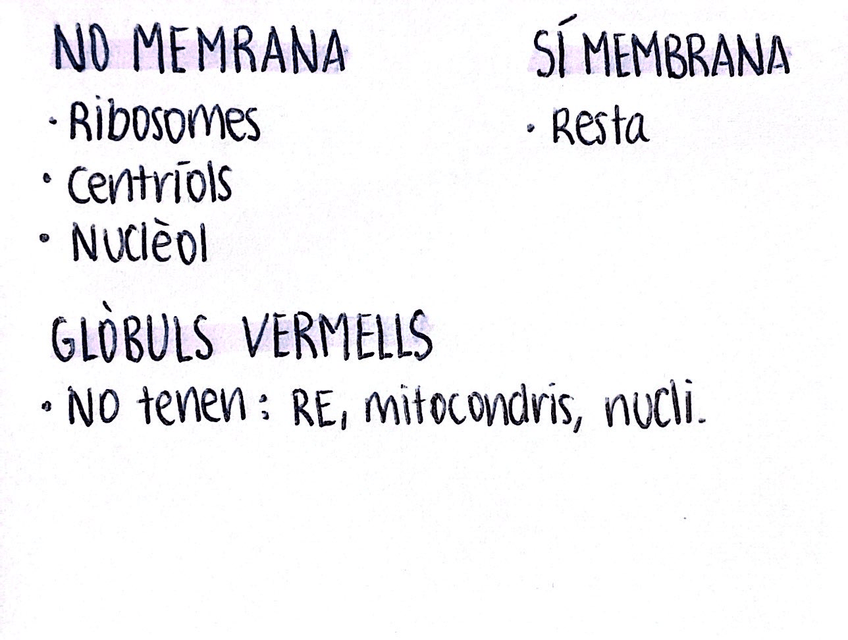 NO MEMRANA
· Ribosomes
· Centríols
· Nuclèol
SÍ MEMBRANA
· Resta
GLÒBULS VERMELLS
· NO tenen: RE, mitocondris, nucli.